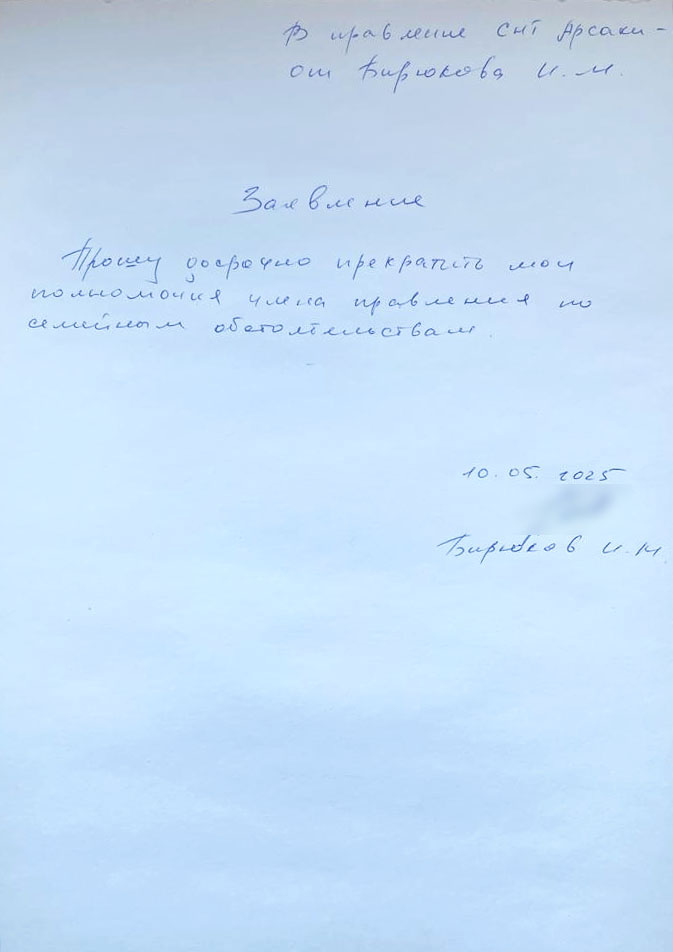 В правление СНТ Арсаки-
от Бирюкова И.М.
Заявление
Прошу досрочно прекратить мои
полномочия члена правления по
семейным обстоятельствам.
10.05.2025
Бирюков И.М.